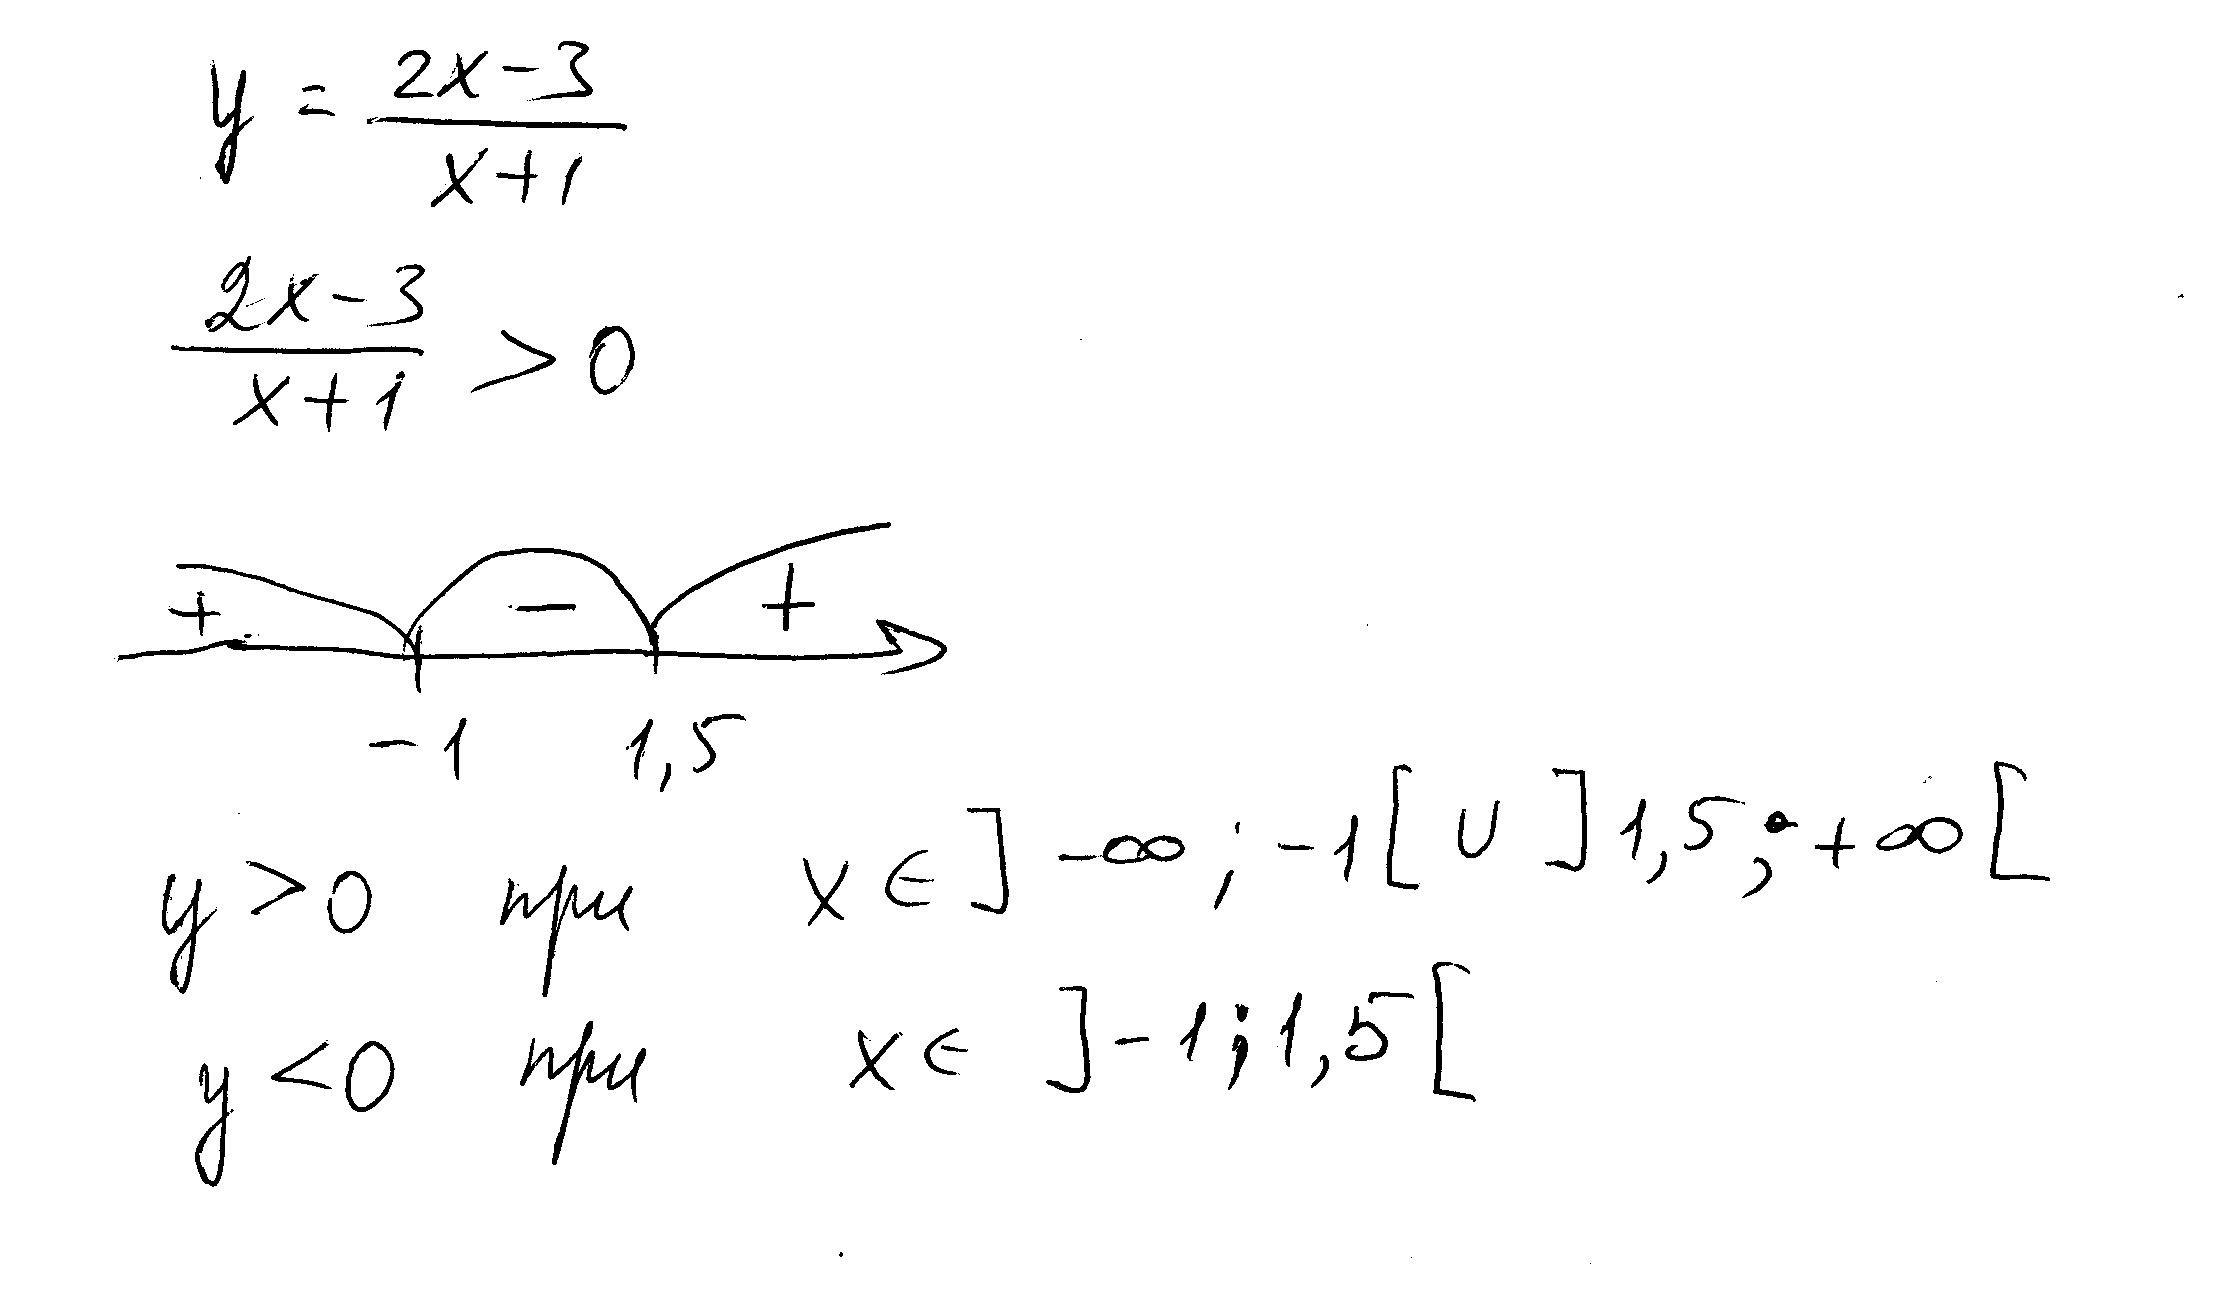 y = (2x-3)/(x+1)
(2x-3)/(x+1) > 0
+ - +
-1 1,5
y > 0 при x ∈ ]-∞; -1[ ∪ ]1,5; +∞[
y < 0 при x ∈ ]-1; 1,5[